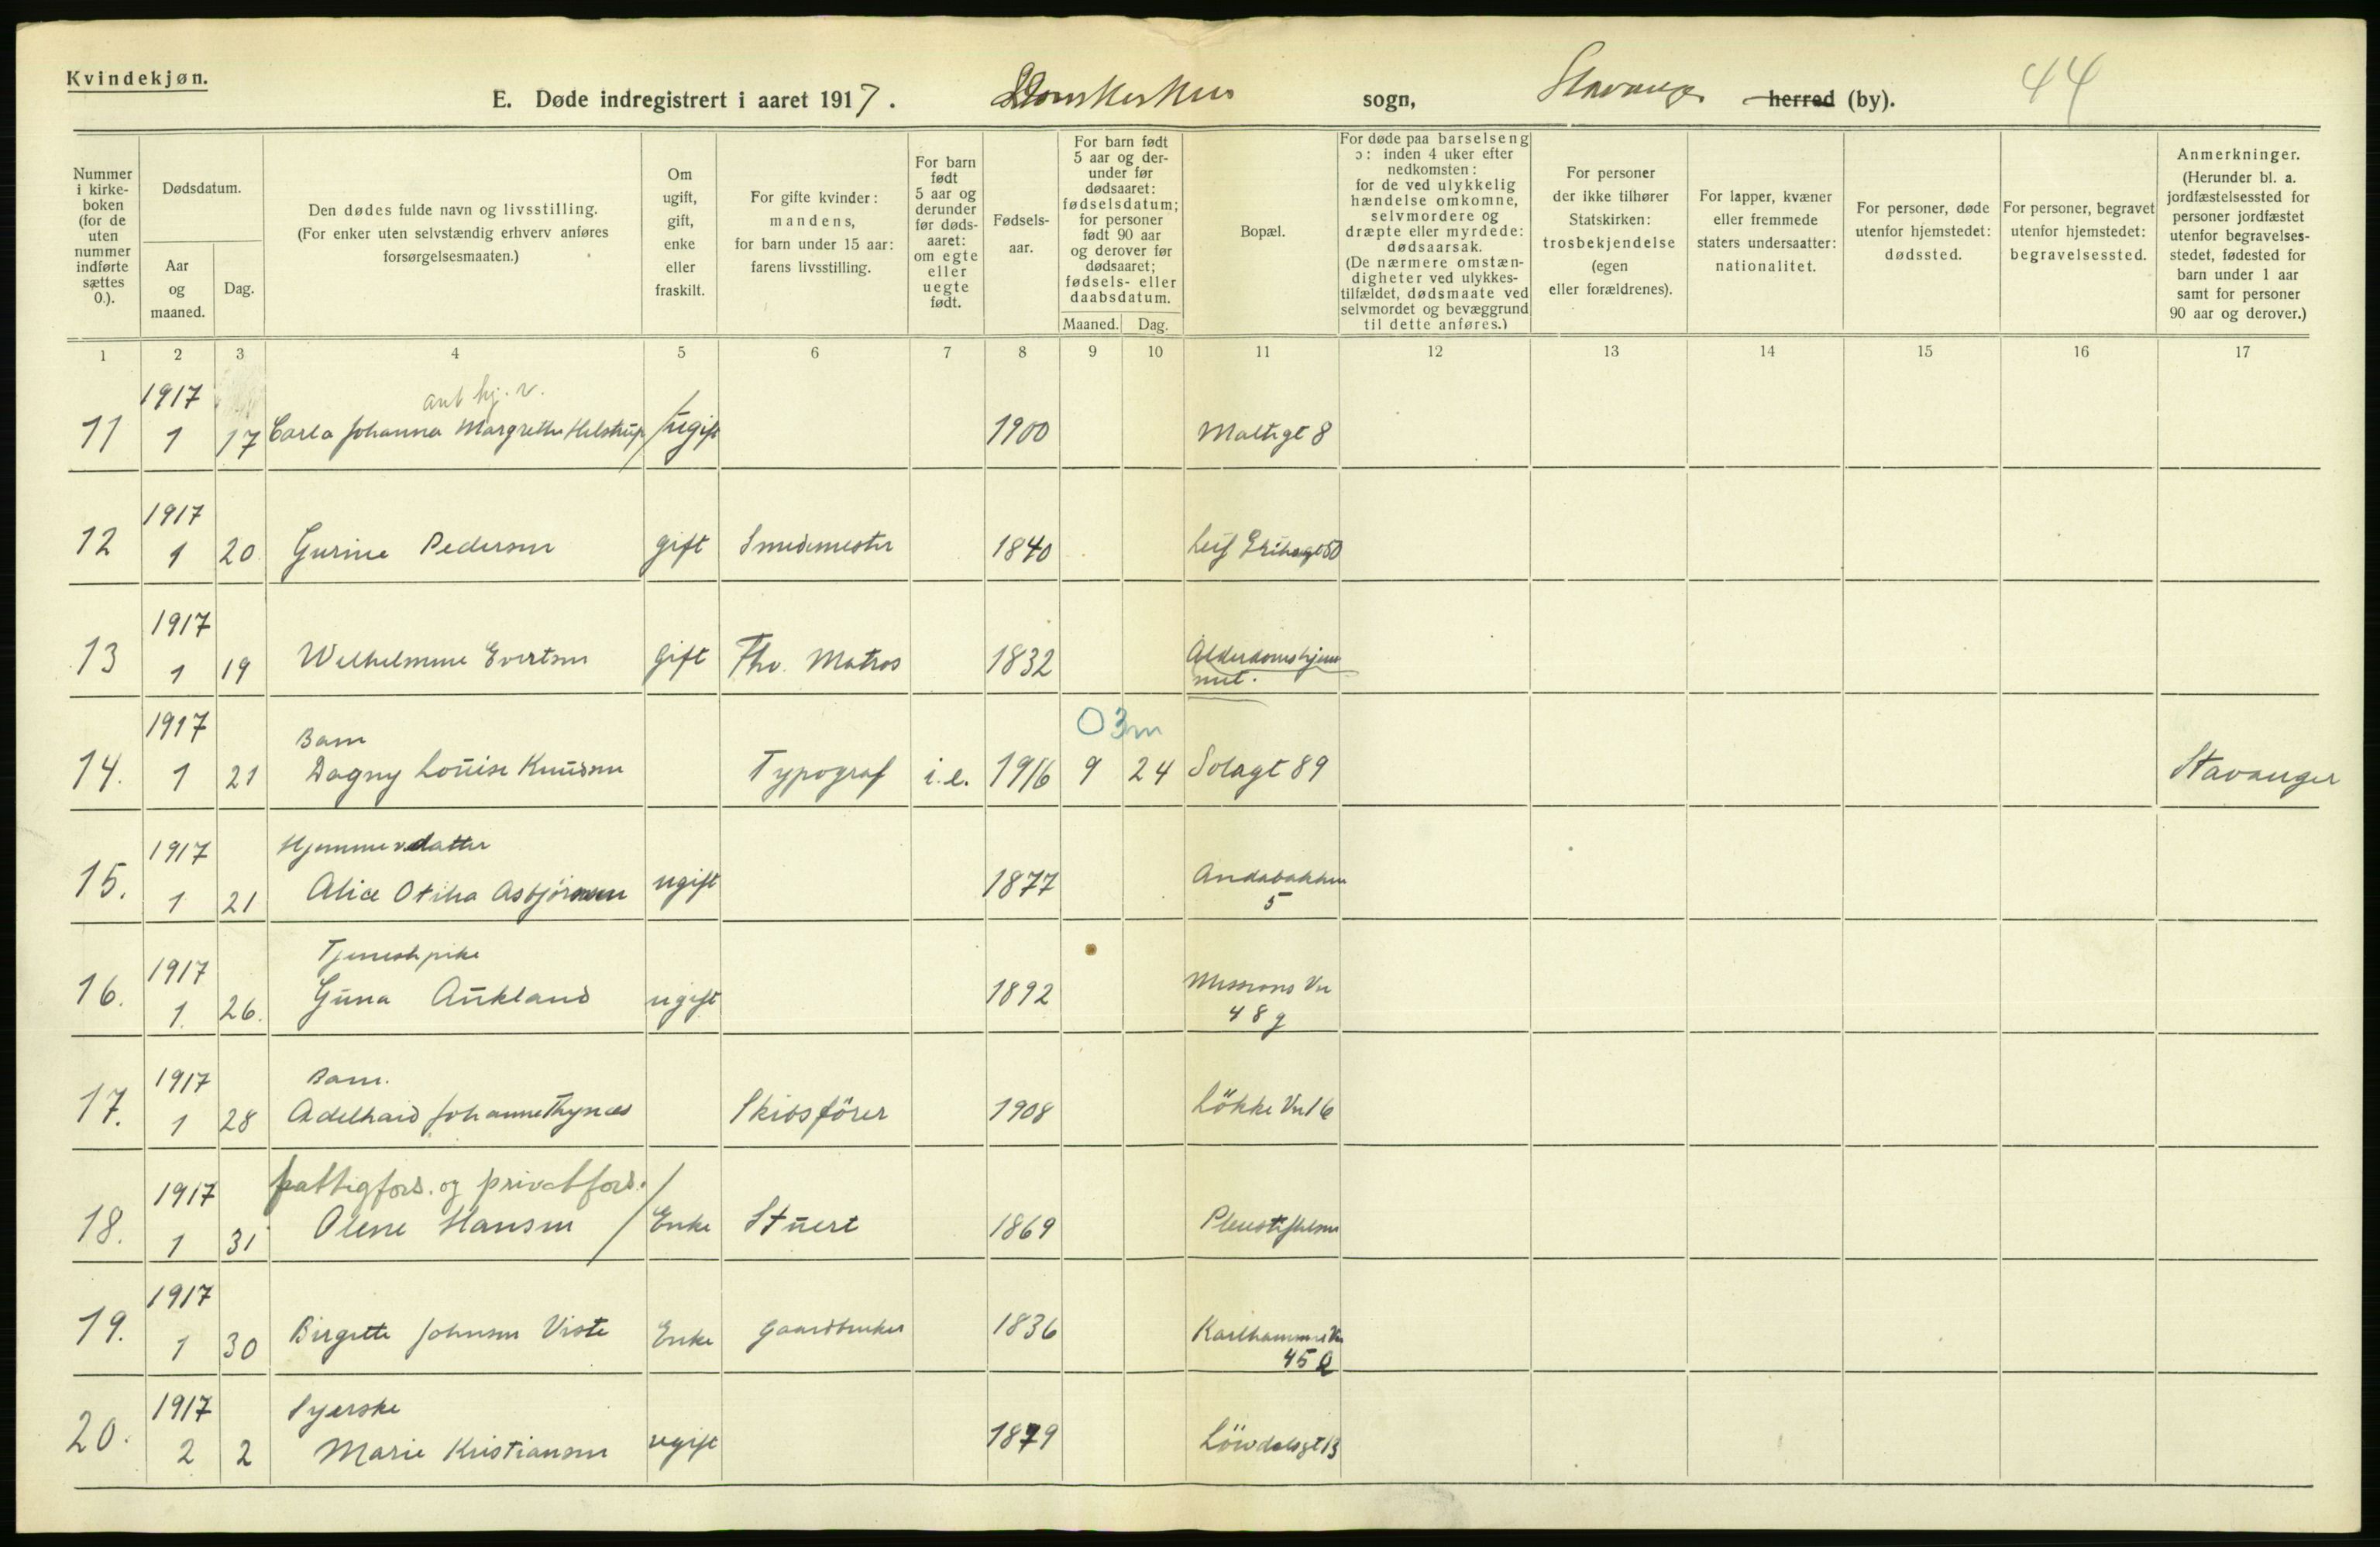 Kvindekjøn.
E. Døde indregistrert i aaret 1917. Domkirkens sogn, Stavanger herred (by). 44
Nummer i kirke-boken (for de uten nummer indførte sættes 0.).
Dødsdatum.
Aar og maaned.
Dag.
Den dødes fulde navn og livsstilling. (For enker uten selvstændig erhverv anføres forsørgelsesmaaten.)
Om ugift, gift, enke eller fraskilt.
For gifte kvinder: mandens, for barn under 15 aar: farens livsstilling.
For barn født 5 aar og derunder før døds-aaret: om egte eller uegte født.
Fødsels-aar.
For barn født 5 aar og der-under før dødsaaret: fødselsdatum; for personer født 90 aar og derover før dødsaaret; fødsels- eller daabsdatum.
Maaned. Dag.
Bopæl.
For døde paa barselseng ɔ: inden 4 uker efter nedkomsten: for de ved ulykkelig hændelse omkomne, selvmordere og dræpte eller myrdede: dødsaarsak. (De nærmere omstæn-digheter ved ulykkes-tilfældet, dødsmaate ved selvmordet og bevæggrund til dette anføres.)
For personer der ikke tilhører Statskirken: trosbekjendelse (egen eller forældrenes).
For lapper, kvæner eller fremmede staters undersaatter: nationalitet.
For personer, døde utenfor hjemstedet: dødssted.
For personer, begravet utenfor hjemstedet: begravelsessted.
Anmerkninger. (Herunder bl. a. jordfæstelsessted for personer jordfæstet utenfor begravelses-stedet, fødested for barn under 1 aar samt for personer 90 aar og derover.)
1 2 3 4 5 6 7 8 9 10 11 12 13 14 15 16 17
1917 ant hj. v.
11 1 17 Carla Johanna Margrethe Helstrup ugift 1900 Maltigt 8
1917
12 1 20 Gurine Pedersen gift Smedmester 1840 Leif Eriksgt 50
1917
13 1 19 Wilhelmine Evertsen gift Fhv. Matros 1832 Alderdomshjem
met.
1917 Barn 0 3m
14. 1 21 Dagny Louise Knudsen Typograf i.e. 1916 9 24 Solagt 89 Stavanger
1917 Hjemmev. datter
15. 1 21 Alice Otilia Asbjörnsen ugift 1877 Andabakken
5
1917 Tjenestepike
16. 1. 26. Guna Aukland ugift 1892 Missions Vn
48 g
1917 Barn.
17. 1 28 Adelhaid Johanne Thynæs Skibsförer 1908 Lökke Vn 16
1917 fattigfors. og privatfors.
18. 1 31 Olene Hansen Enke Stuert 1869 Pleiestiftelsen
1917
19. 1 30 Birgitte Johnsen Viste Enke Gaardbruker 1836 Karlhammer Vn
45
1917 Syerske
20. 2 2 Marie Kristiansen ugift 1879 Lövdalsgt 13